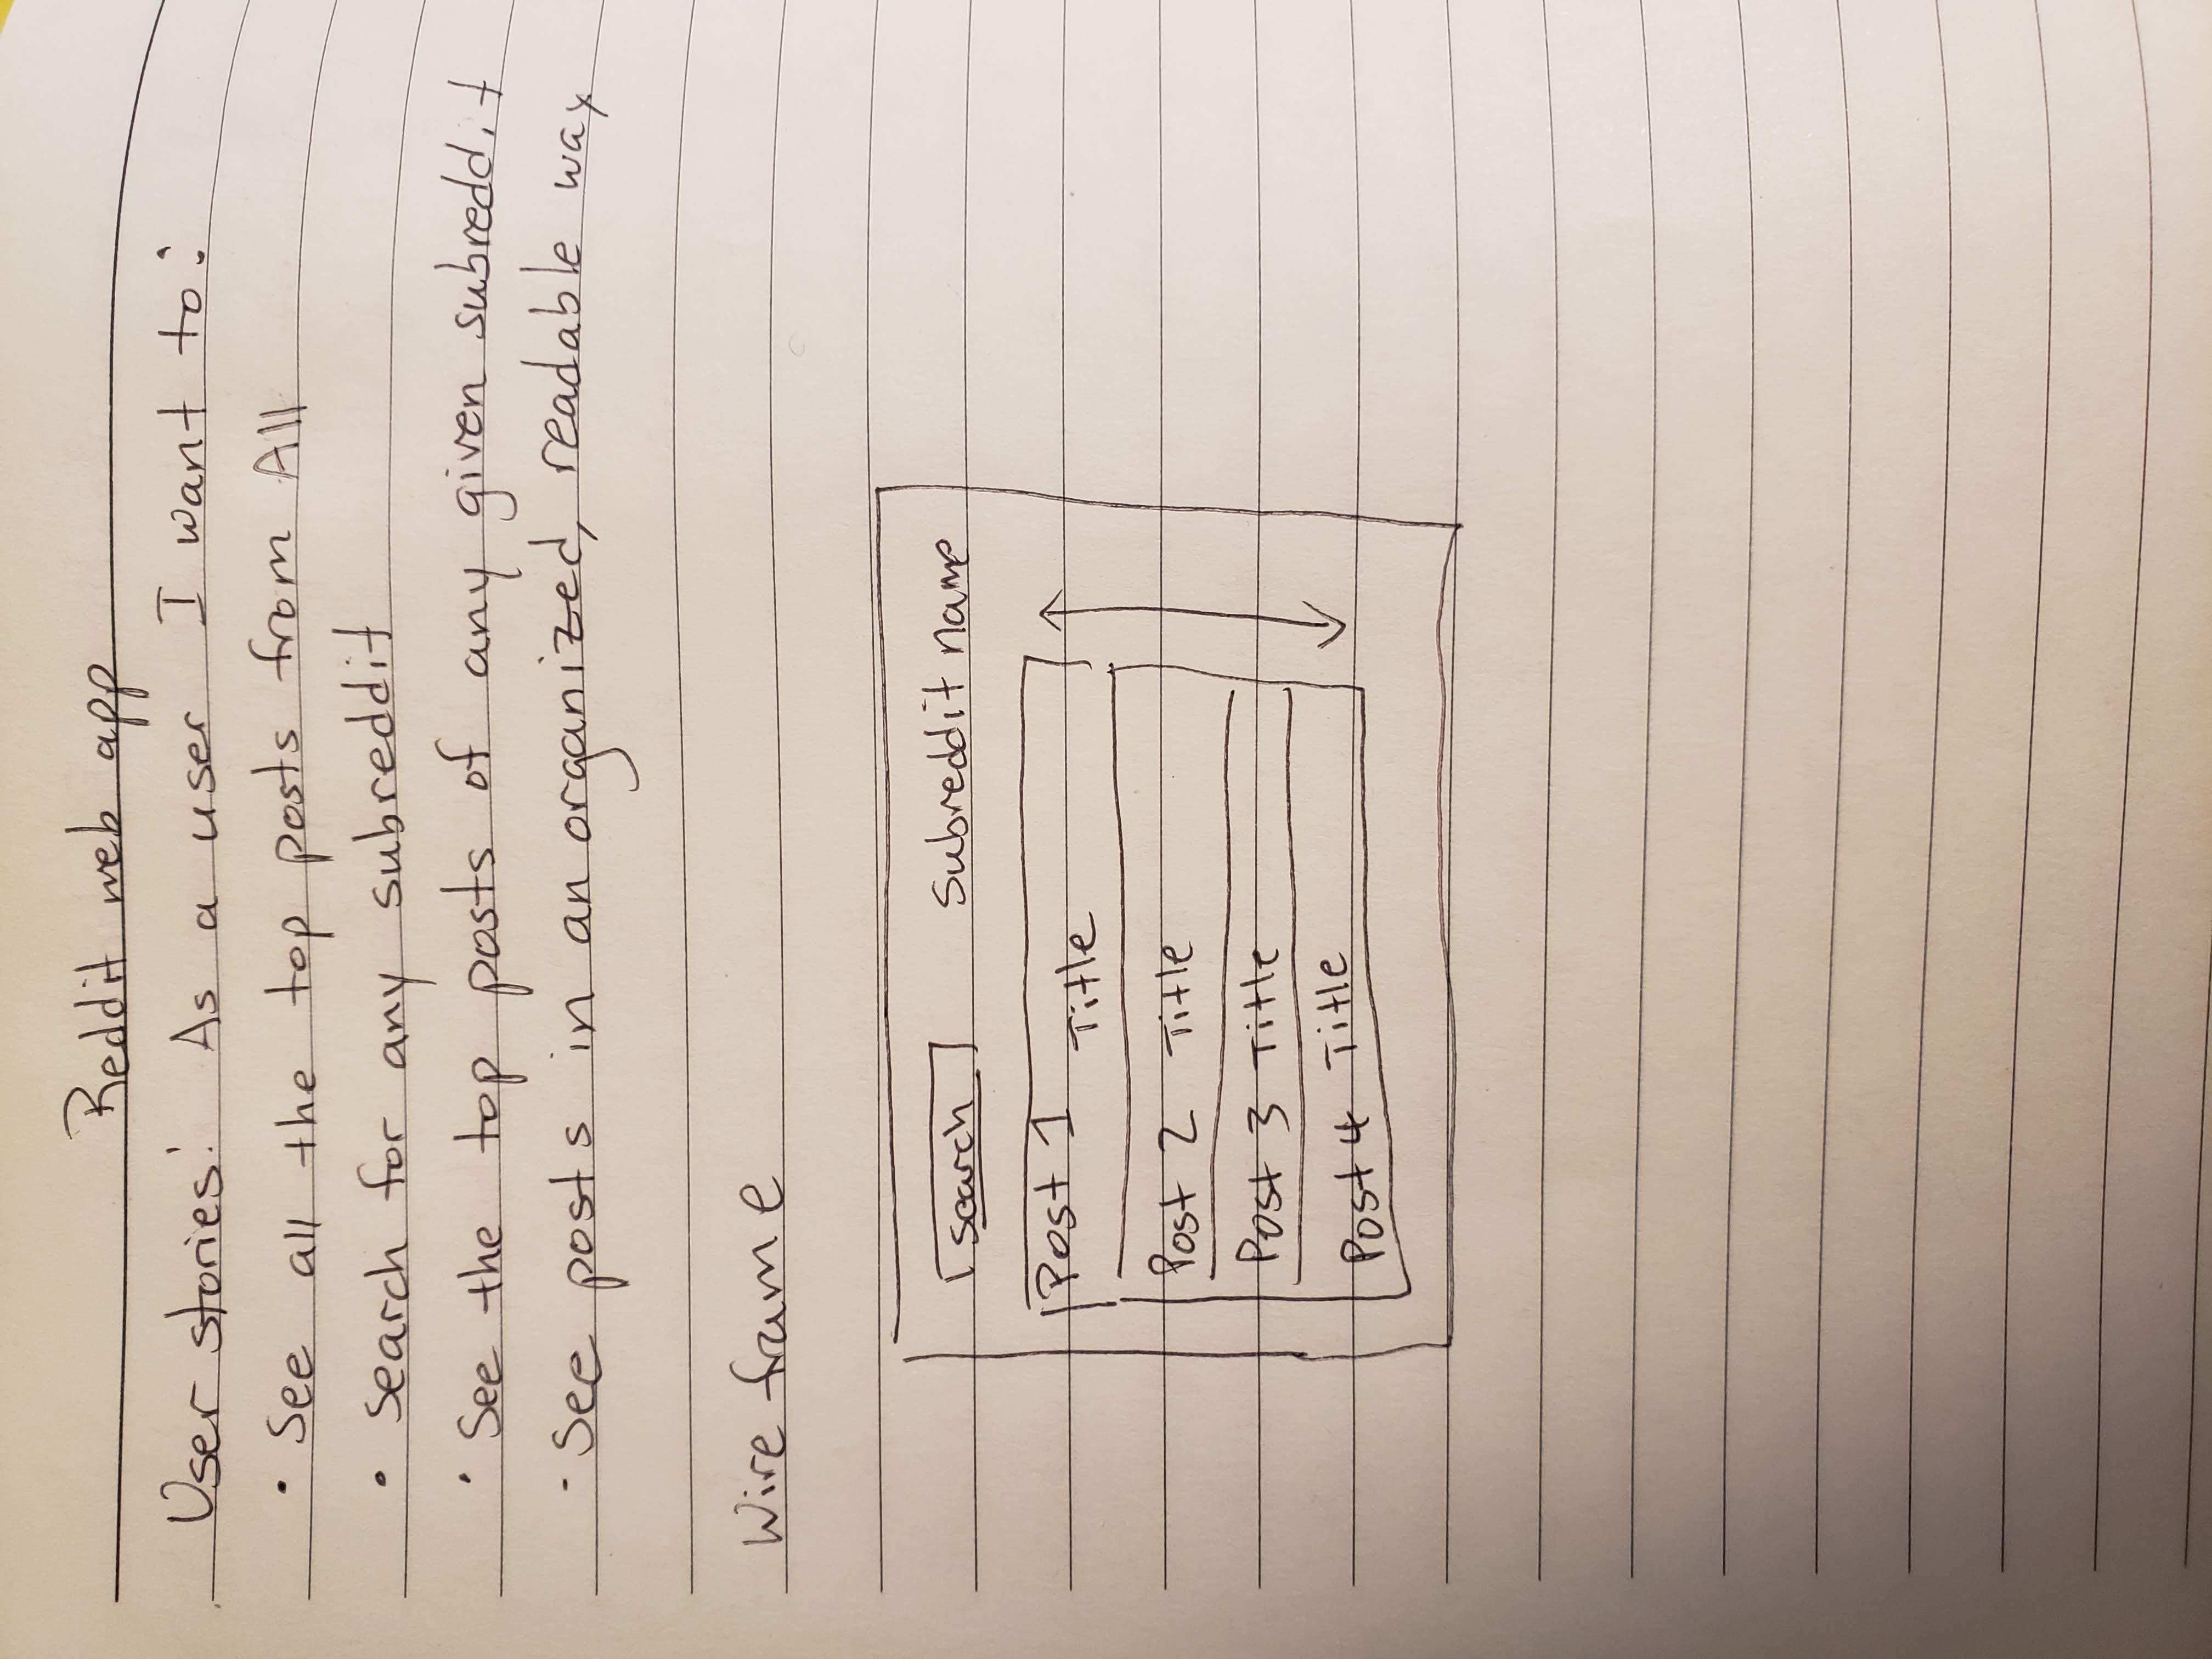 Reddit web app
User stories: As a user I want to:
• See all the top posts from All
• Search for any subreddit
• See the top posts of any given subreddit
• See posts in an organized, readable way
Wire frame
Search Subreddit name
Post 1 Title
Post 2 Title
Post 3 Title
Post 4 Title